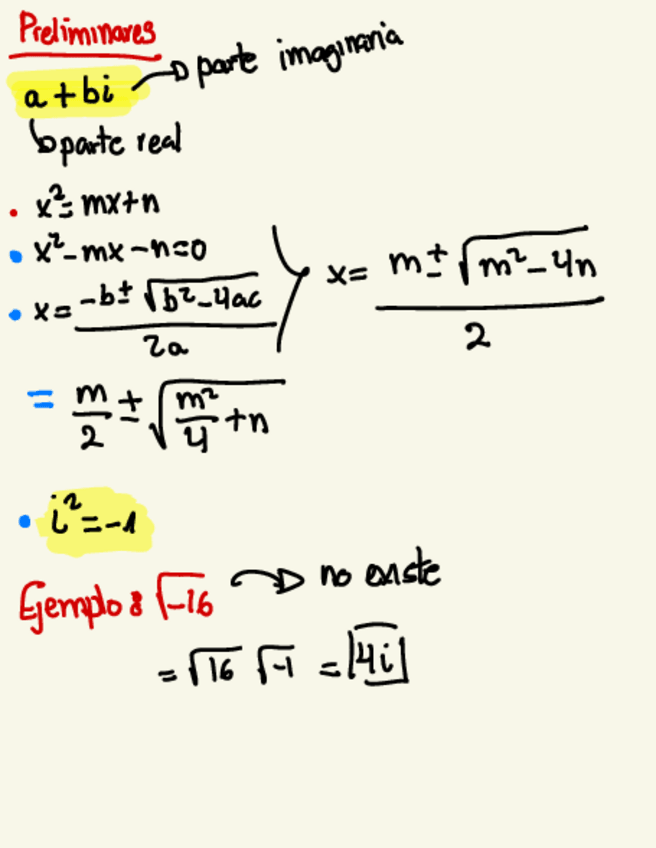 Preliminares
a + bi → parte imaginaria
↳ parte real
• x² = mx+n
• x² - mx - n = 0
• x = (-b ± √(b² - 4ac)) / 2a
x = (m ± √(m² - 4n)) / 2
= m/2 ± √(m²/4 + n)
• i² = -1
Ejemplo: √-16 → no existe
= √16 √-1 = 4i